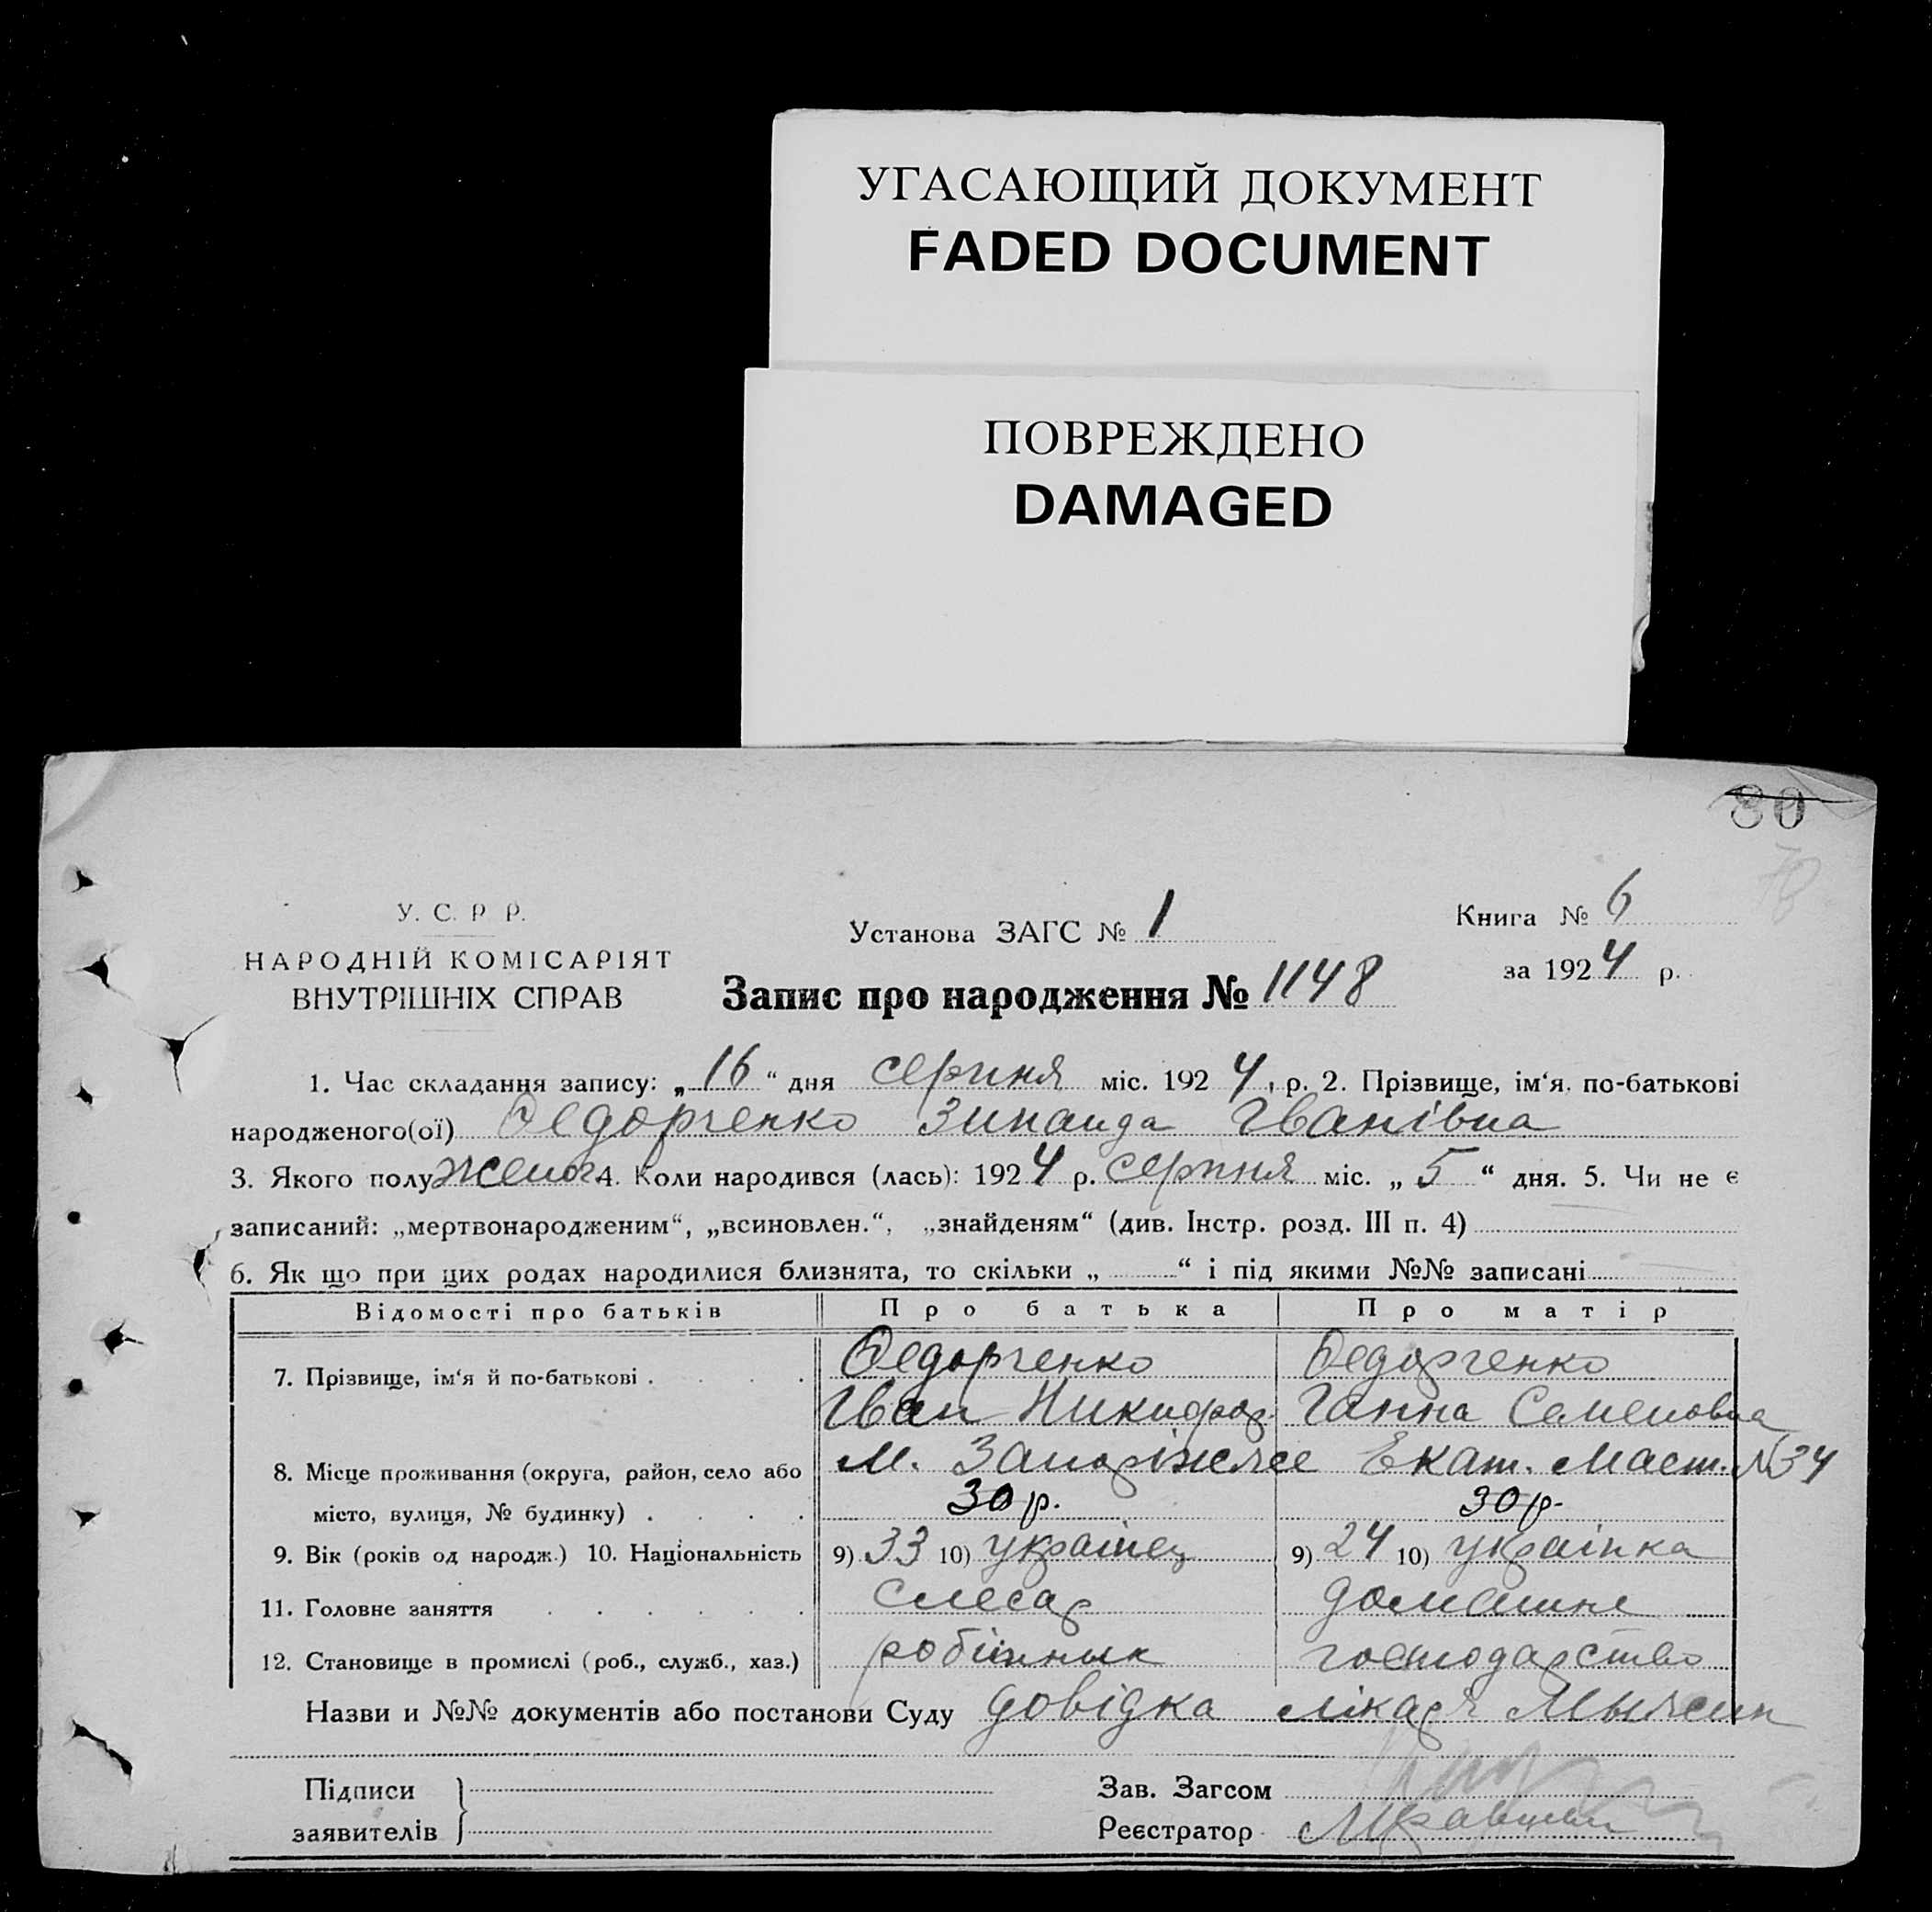 УГАСАЮЩИЙ ДОКУМЕНТ
FADED DOCUMENT
ПОВРЕЖДЕНО
DAMAGED
80
У. С. Р. Р.
НАРОДНІЙ КОМІСАРІЯТ
ВНУТРІШНІХ СПРАВ
Установа ЗАГС № 1
Книга № 6
за 1924 р.
Запис про народження № 1148
1. Час складання запису: „16“ дня серпня міс. 1924 р. 2. Прізвище, ім‘я, по-батькові
народженого(ої) Федорченко Зинаида Іванівна
3. Якого полу женог 4. Коли народився (лась): 1924 р. серпня міс. „5“ дня. 5. Чи не є
записаний: „мертвонародженим“, „всиновлен.“, „знайденям“ (див. Інстр. розд. III п. 4)
6. Як що при цих родах народилися близнята, то скільки „ “ і під якими №№ записані
Відомості про батьків Про батька Про матір
7. Прізвище, ім‘я й по-батькові Федорченко Федорченко
Іван Никифор. Ганна Семеновна
8. Місце проживання (округа, район, село або М. Запоріжжє Екат. маст. №34
місто, вулиця, № будинку) 30 р. 30 р.
9. Вік (років од народж.) 10. Національність 9) 33 10) українец 9) 24 10) українка
11. Головне заняття слесар домашнє
12. Становище в промислі (роб., служб., хаз.) робінник господарство
Назви и №№ документів або постанови Суду довідка лікаря
Підписи
заявителів
Зав. Загсом
Реєстратор